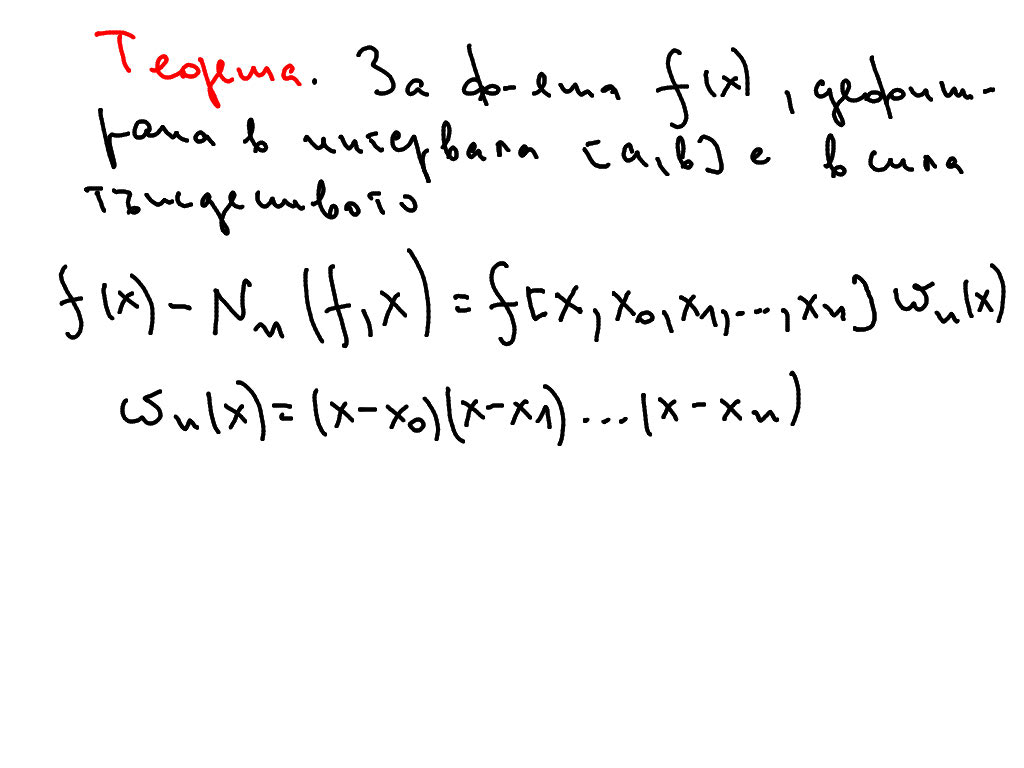 Теорема. За ф-ята f(x), дефини-
рана в интервала [a,b] е в сила
тъждеството
f(x) - N_n(f,x) = f[x, x_0, x_1, ..., x_n] ω_n(x)
ω_n(x) = (x-x_0)(x-x_1)...(x-x_n)